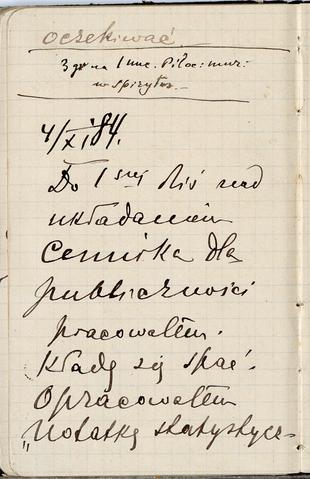 oczekiwać
3 gr na 1 unc. Piloc: mur:
w spiryt.
4/XI 84.
Do 1szej dziś nad
układaniem
Cennika dla
publiczności
pracowałem.
Kładę się spać.
Opracowałem
„Notatkę statystycz-